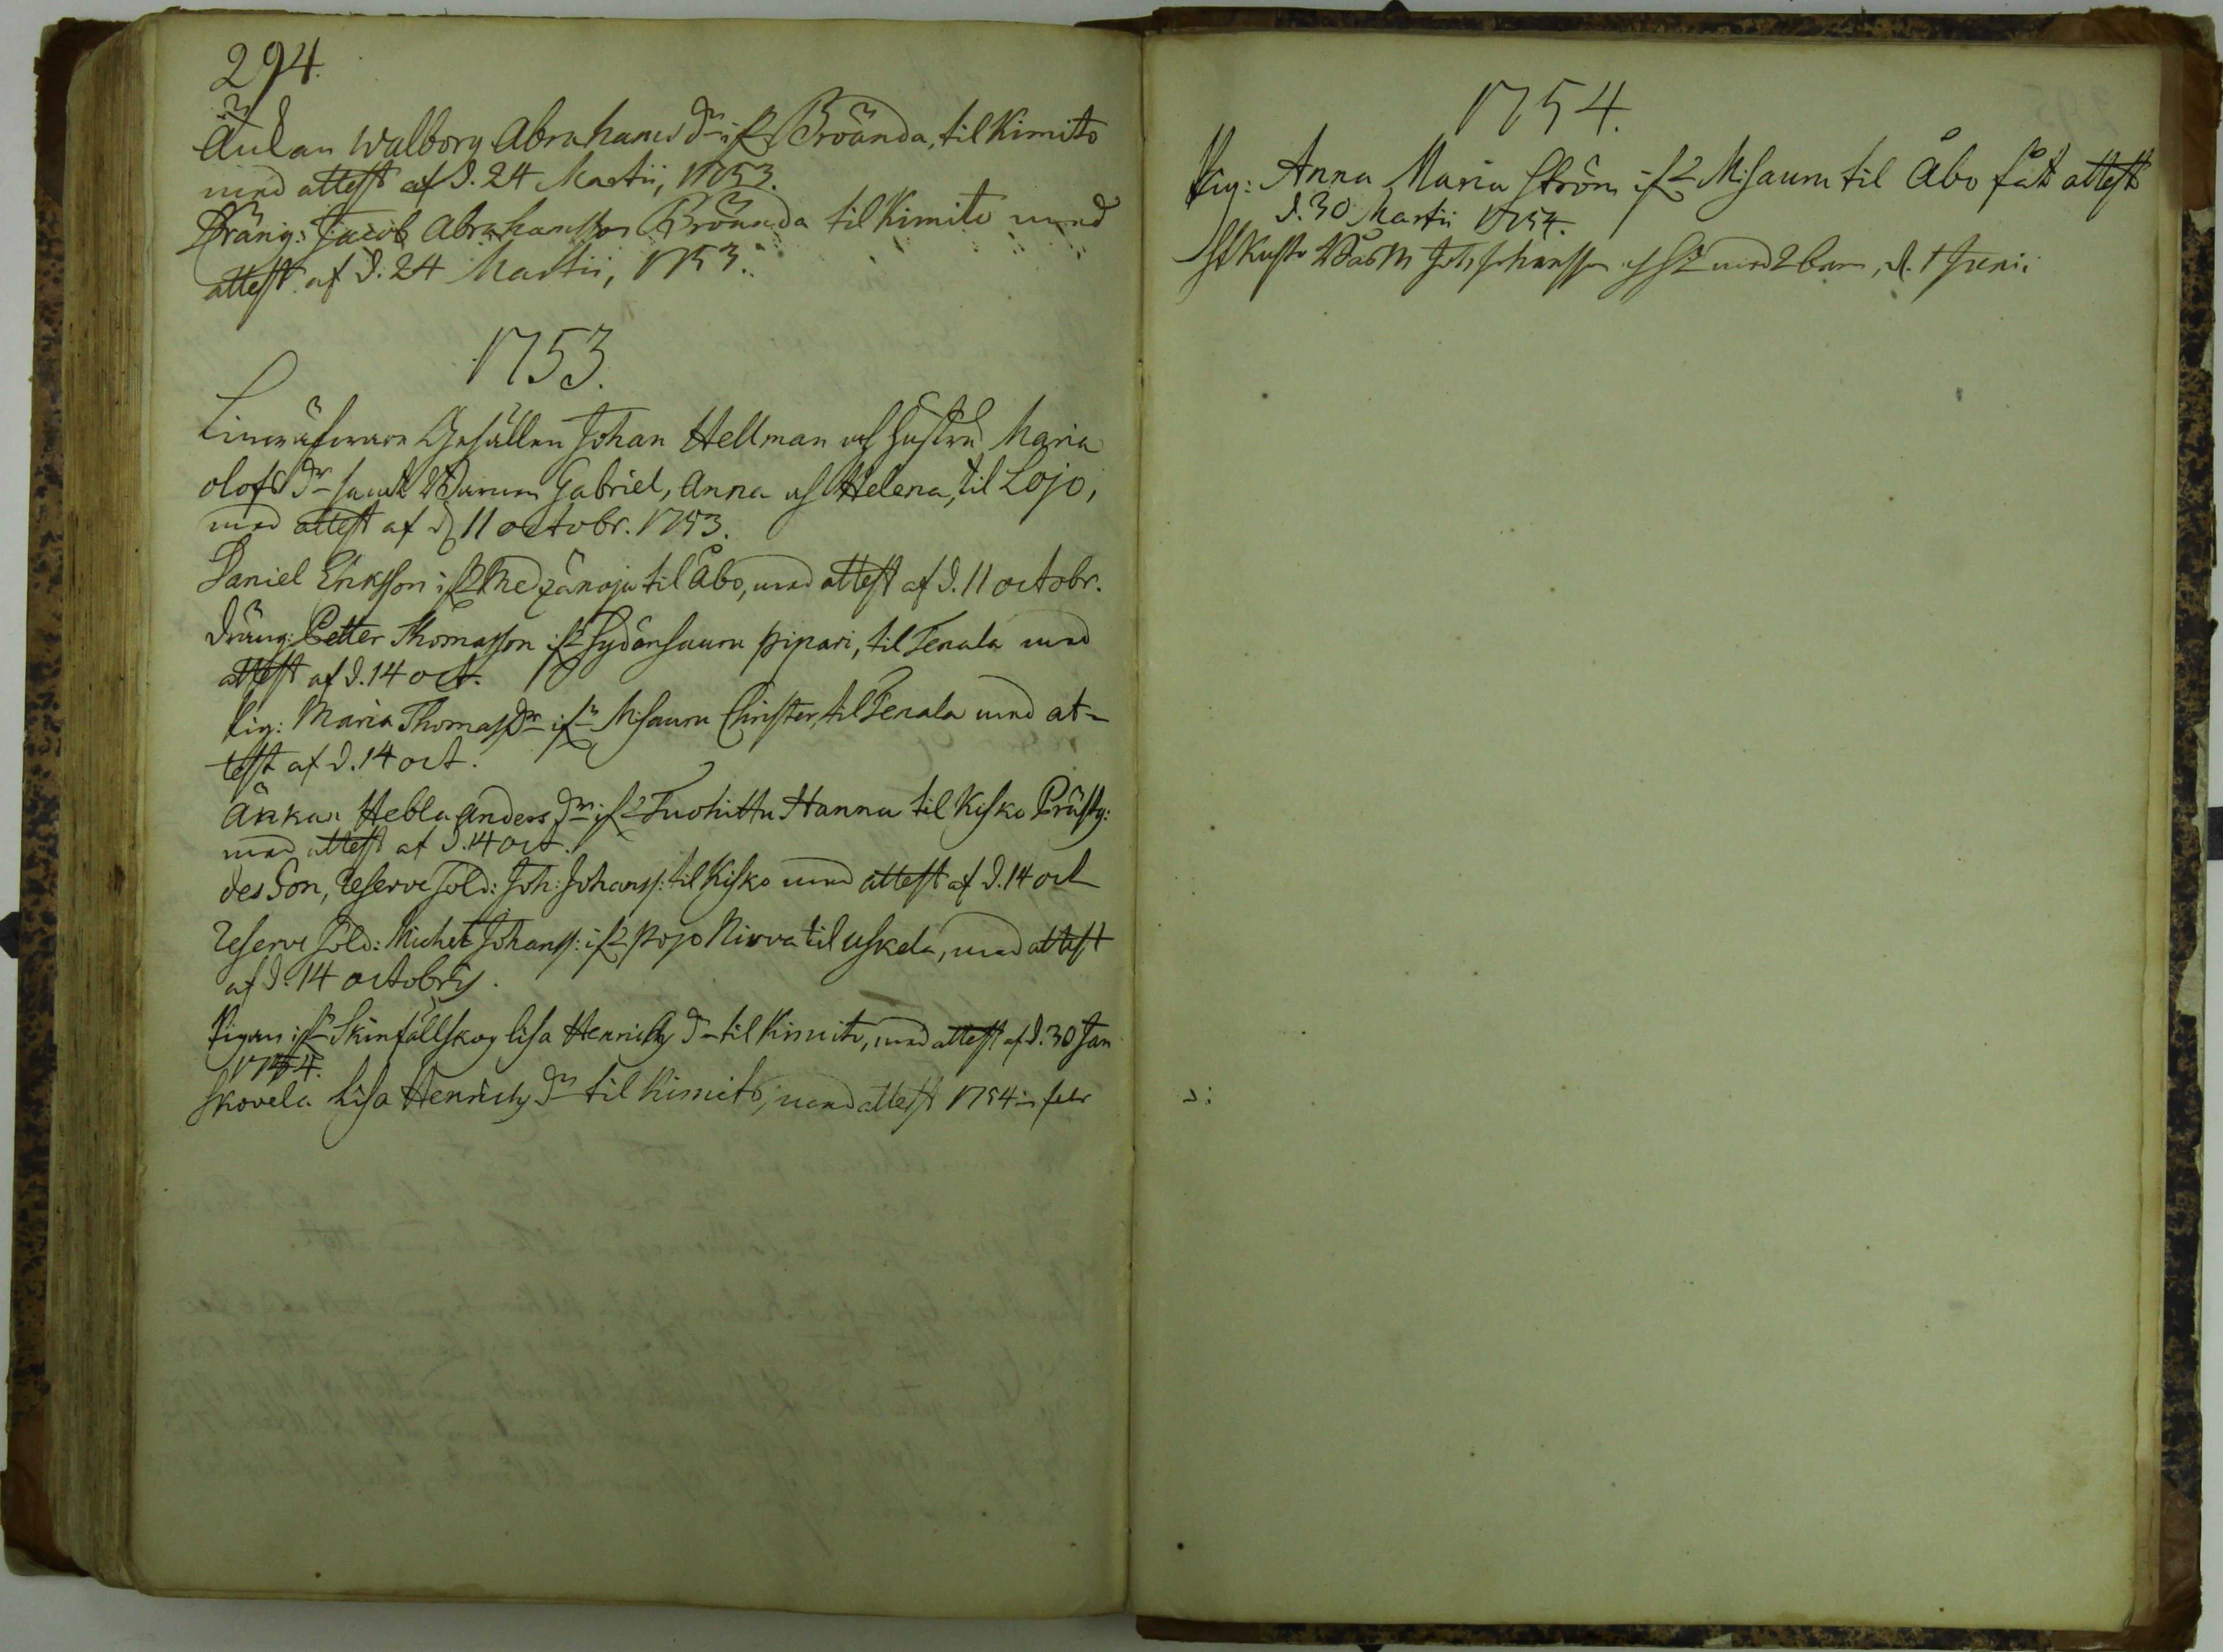 294.
Änkan Walborg Abrahams dr ifr Bröända, til Kimito
med attest af d. 24 Martii, 1753.
Dräng: Jacob Abrahamsson Bröända til Kimito med
attest af d. 24 Martii, 1753.
1753.
Linwäfware Gesällen Johan Hellman och hustru Maria
Olofs dr samt Barnen Gabriel, Anna och Helena, til Lojo,
med attest af d. 11 octobr. 1753.
Daniel Eriksson ifr til Åbo, med attest af d. 11 octobr.
Dräng: Petter Thomasson ifr Sydänsaura pipari, til Tenala med
attest af d. 14 oct.
Pig: Maria Thomasdr ifr Misaura Christer, til Tenala med at-
test af d. 14 oct.
Änkan Hebla Anders dr ifr Tuohittu Hannu til Kisko Prästg:
med attest af d. 14 oct.
des Son, Reserve Sold: Joh: Johanss: til Kisko med attest af d. 14 oct
Reserve Sold: Michel Johanss: ifr Pojo Nirva til Uskela, med attest
af d. 14 octobris.
Pigan ifr Skinfällskog Lisa Henrichs dr til Kimito, med attest af d. 30 Jan
1754.
Skovela Lisa Henrichs dr til Kimito, med attest 1754 in febr
1754.
Pig: Anna Maria Ström ifr Misaura til Åbo fåt attest
d. 30 Martii 1754.
Joh Johansson med 2 barn, d. 1 Junii